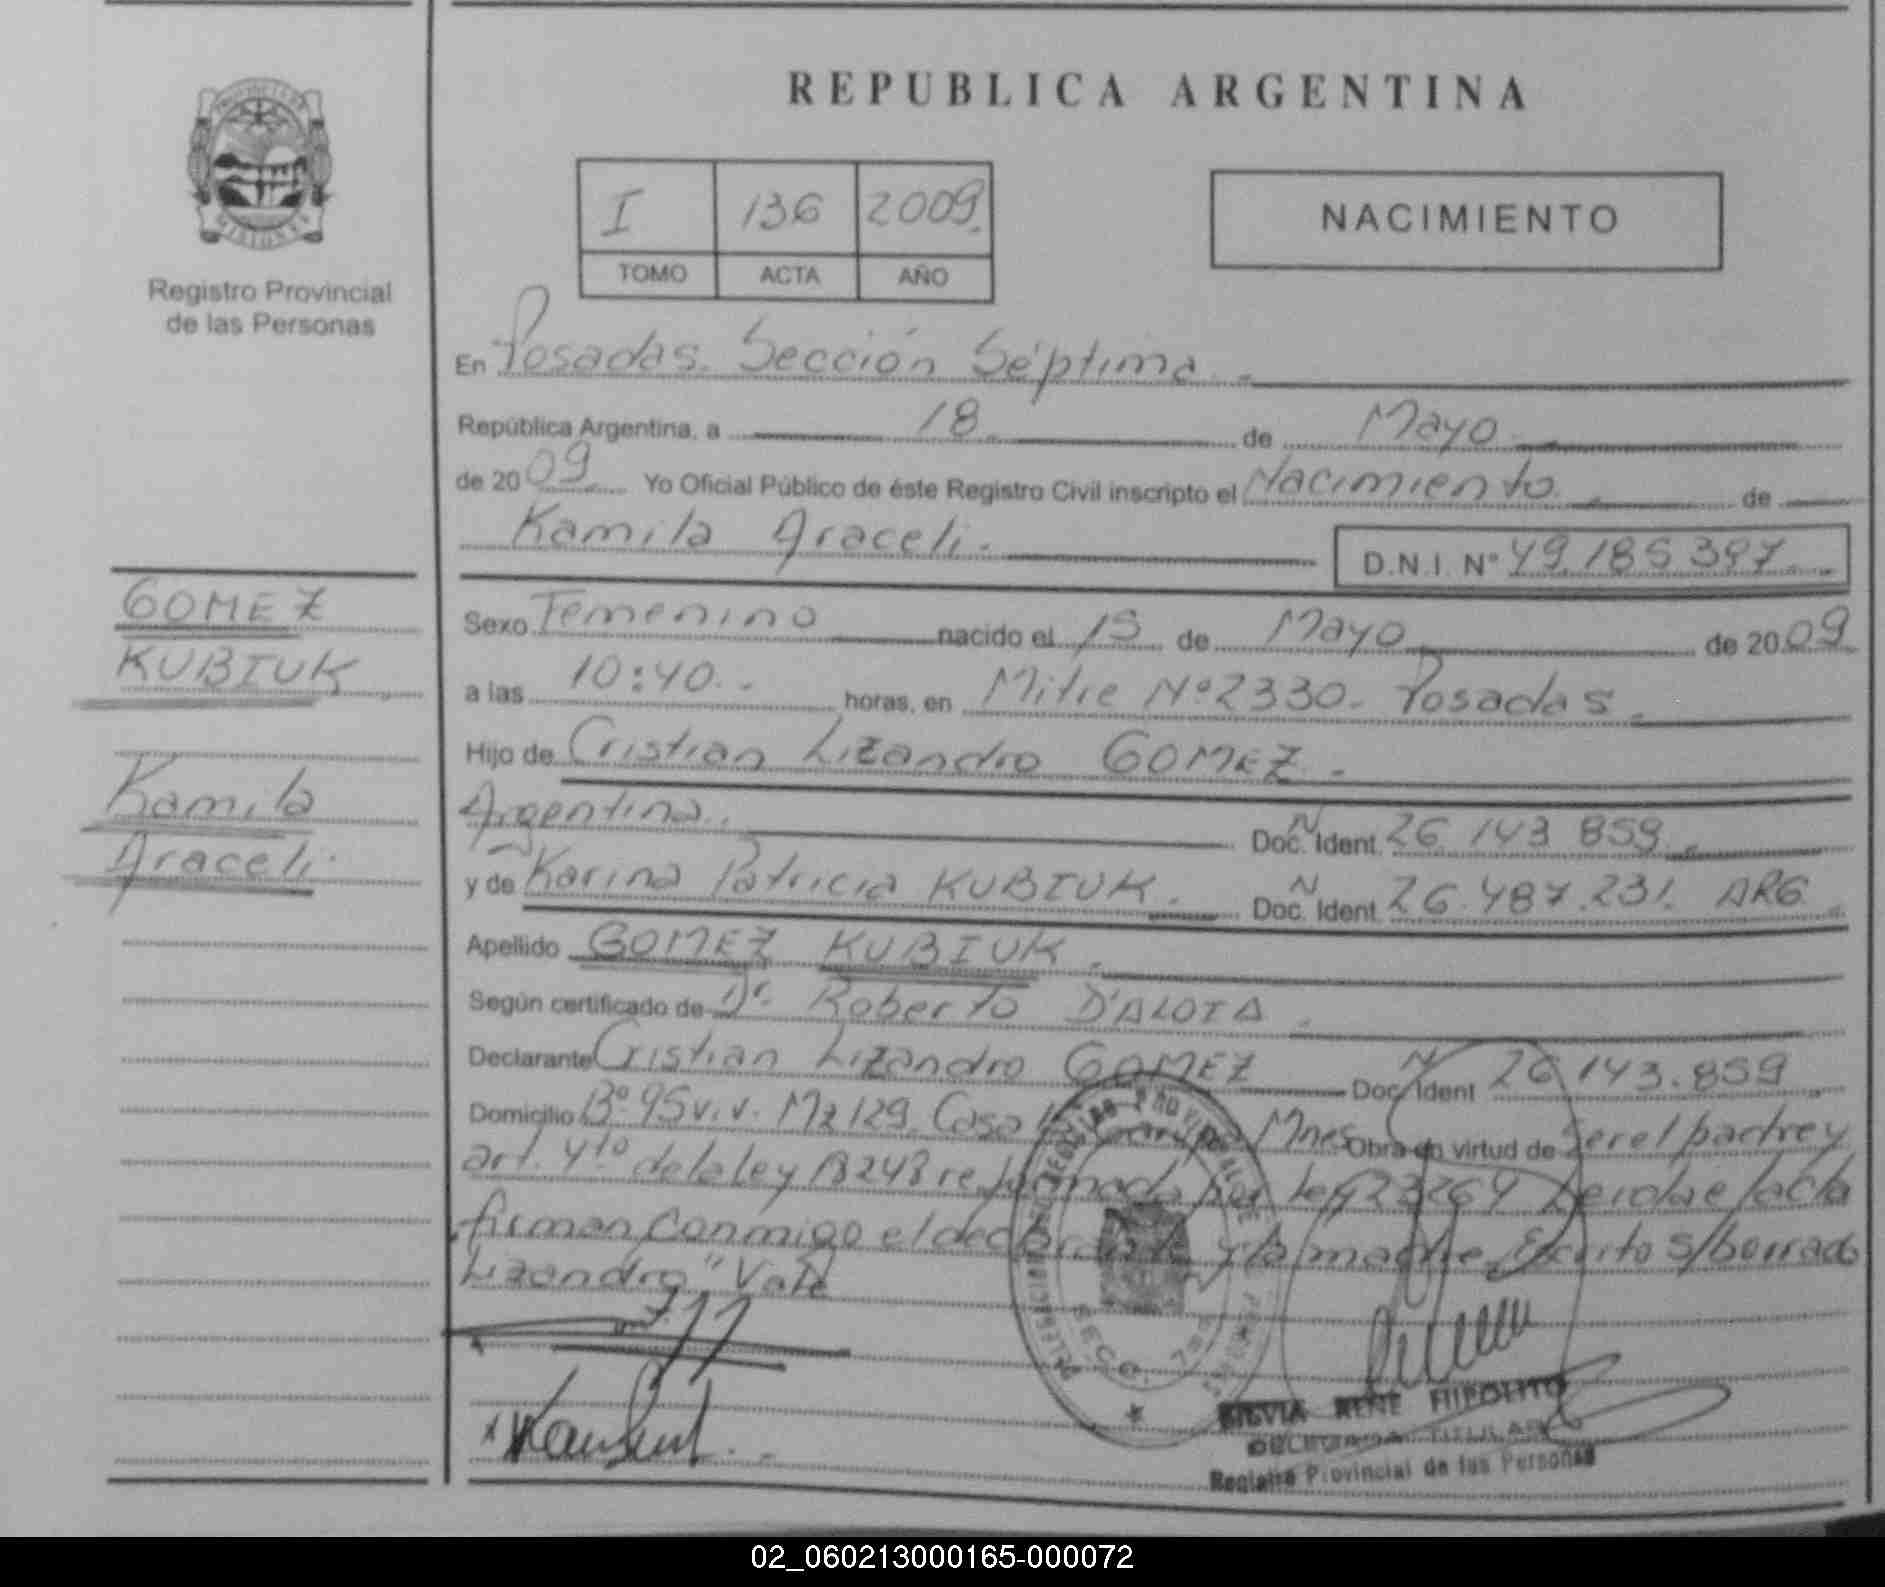 REPUBLICA ARGENTINA
I 136 2009
TOMO ACTA AÑO
NACIMIENTO
Registro Provincial
de las Personas
En Posadas. Sección Séptima.
República Argentina, a 18 de Mayo
de 2009 Yo Oficial Público de éste Registro Civil inscripto el Nacimiento de
Kamila Araceli. D.N.I. Nº 49.185.397
GOMEZ
KUBIUK
Kamila
Araceli
Sexo Femenino nacido el 15 de Mayo de 2009
a las 10:40 horas, en Mitre Nº 2330. Posadas
Hijo de Cristian Lizandro GOMEZ.
Argentina. Doc. Ident. N 26 143 859
y de Karina Patricia KUBIUK. Doc. Ident. N 26.487.231. ARG
Apellido GOMEZ KUBIUK
Según certificado de Dr. Roberto D'ALOIA
Declarante Cristian Lizandro GOMEZ Doc. Ident N 26.143.859
Domicilio Bº 95 v.v. Mz 129. Casa Mnes Obra en virtud de Ser el padre y
art. 4to de la ley 18248 reformada por ley 23264 Leida el acta
firman conmigo el declarante y la madre Escrito s/borrado
Lizandro" Vale
SILVIA RENE HIPOLITO
DELEGADA TITULAR
Registro Provincial de las Personas
02_060213000165-000072